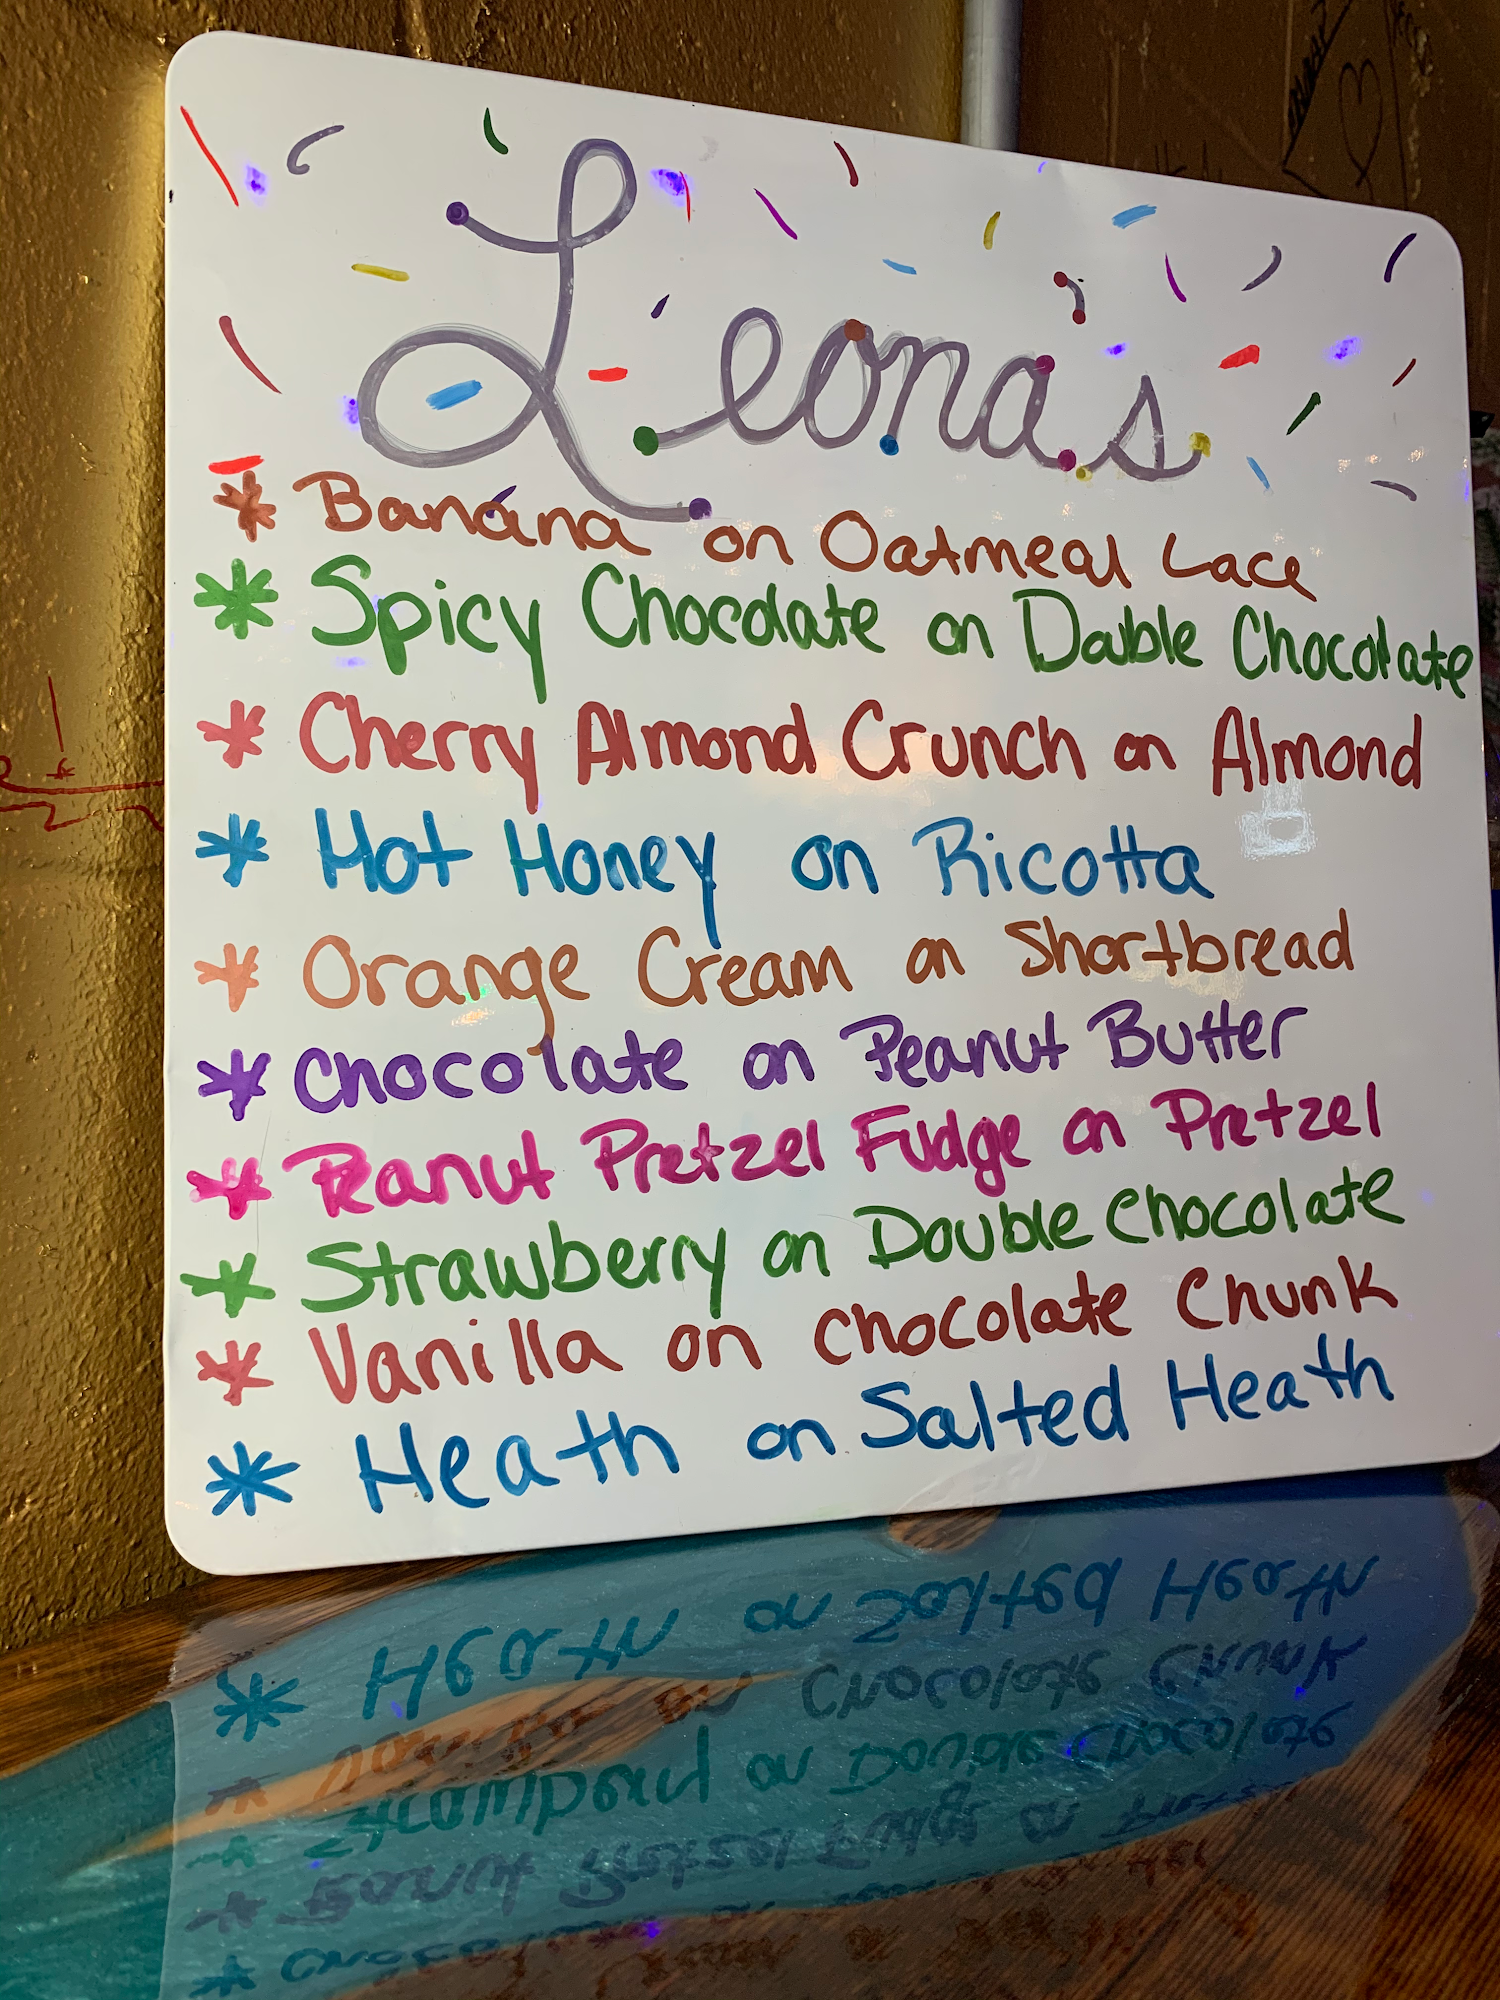 Leona's
* Banana on Oatmeal Lace
* Spicy Chocolate on Double Chocolate
* Cherry Almond Crunch on Almond
* Hot Honey on Ricotta
* Orange Cream on Shortbread
* Chocolate on Peanut Butter
* Peanut Pretzel Fudge on Pretzel
* Strawberry on Double Chocolate
* Vanilla on Chocolate Chunk
* Heath on Salted Heath